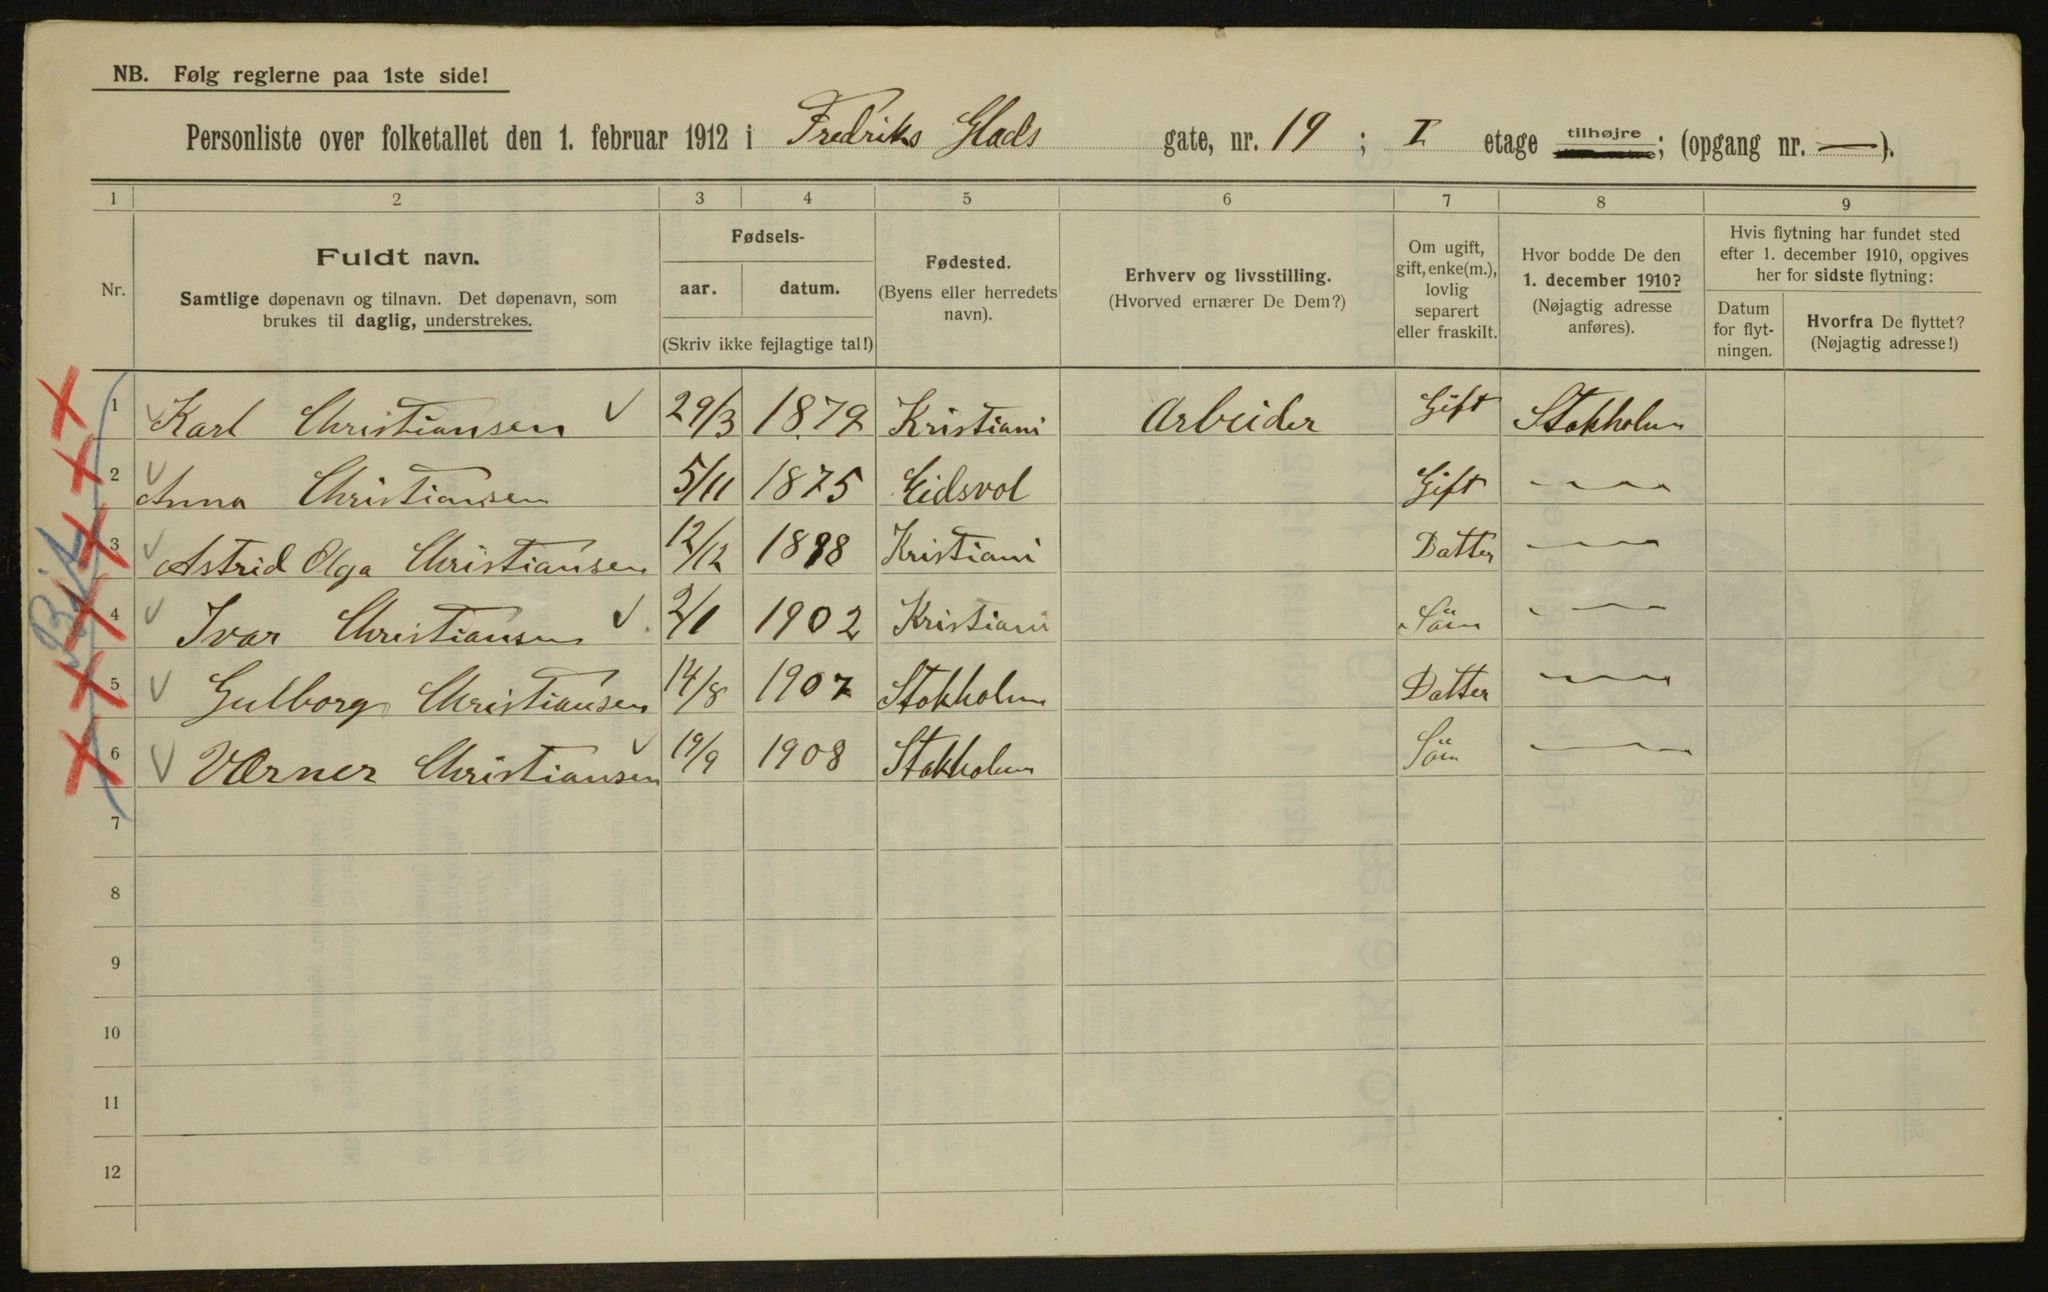 NB. Følg reglerne paa 1ste side!
Personliste over folketallet den 1. februar 1912 i Fredriks Glads gate, nr. 19 ; I etage tilhøjre ; (opgang nr. — ).
1 2 3 4 5 6 7 8 9
Nr.
Fuldt navn.
Samtlige døpenavn og tilnavn. Det døpenavn, som
brukes til daglig, understrekes.
Fødsels-
aar. datum.
(Skriv ikke fejlagtige tal!)
Fødested.
(Byens eller herredets
navn).
Erhverv og livsstilling.
(Hvorved ernærer De Dem?)
Om ugift,
gift, enke(m.),
lovlig
separert
eller fraskilt.
Hvor bodde De den
1. december 1910?
(Nøjagtig adresse
anføres).
Hvis flytning har fundet sted
efter 1. december 1910, opgives
her for sidste flytning:
Datum
for flyt-
ningen.
Hvorfra De flyttet?
(Nøjagtig adresse!)
1 Karl Christiansen 29/3 1879 Kristiani Arbeider Gift Stokholm
2 Anna Christiansen 5/11 1875 Eidsvol Gift —
3 Astrid Olga Christiansen 12/12 1898 Kristiani Datter —
4 Ivar Christiansen 2/1 1902 Kristiani Sön —
5 Gulborg Christiansen 14/8 1907 Stokholm Datter —
6 Værner Christiansen 19/9 1908 Stokholm Sön —
7
8
9
10
11
12